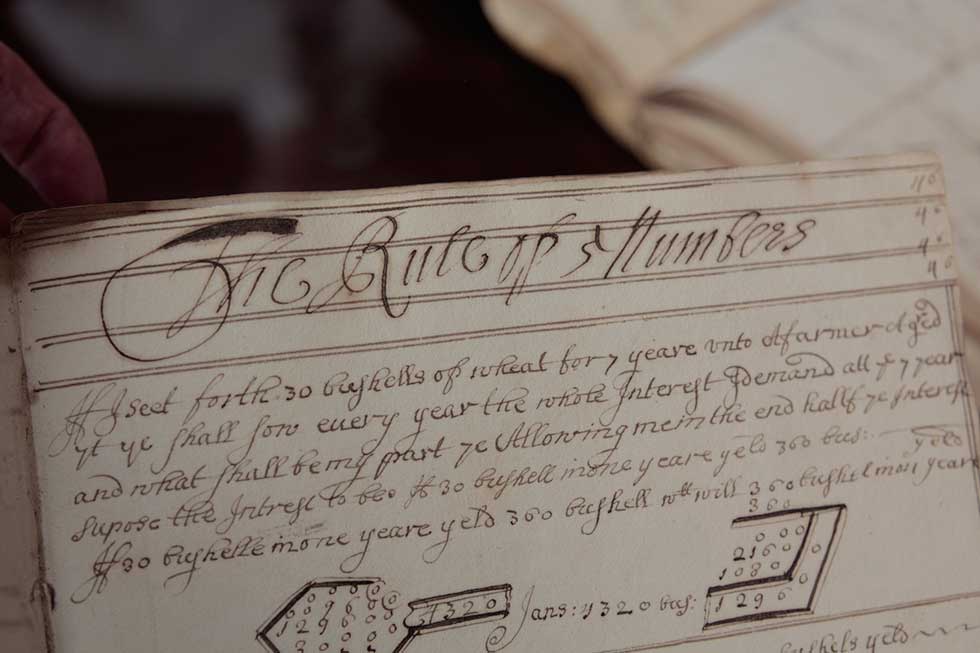 The Rule of 5 Numbers
If I seet forth 30 bushells of wheat for 7 yeare unto A farmer
yt ye shall sow every year the whole Interest I demand all ye 7 year
and what shall be my part ye Allowing me in the end half ye Interest
Supose the Intrest to bee If 30 bushell in one yeare yeld 360 bus: yeld
If 30 bushells in one yeare yeld 360 bushell wt will 360 bushel in on year
360
2160
1080
1296
4320 Jans: 4320 bus:
bushels yeld